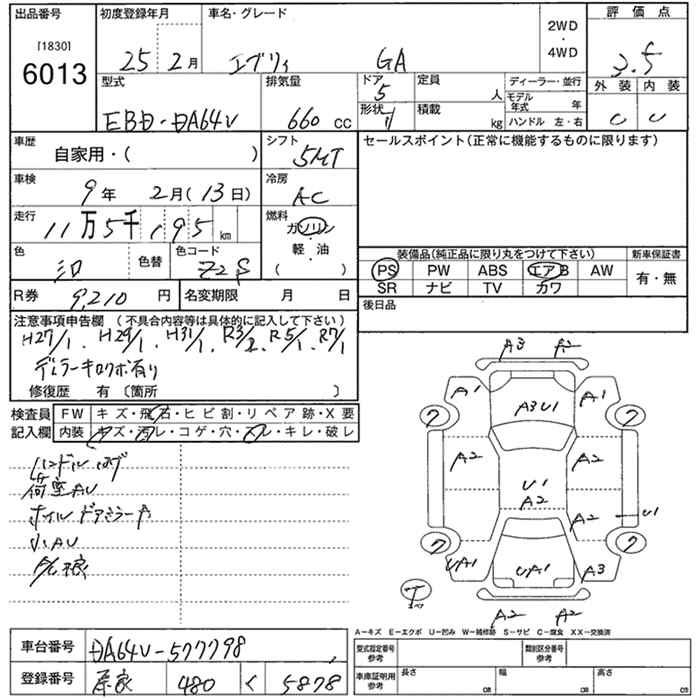 出品番号 初度登録年月 車名・グレード 2WD・4WD 評価点
[1830]
6013 25年 2月 エブリィ GA 3.5
型式 排気量 ドア 5 定員 人 ディーラー・並行 外装 内装
EBD・DA64V 660 cc 形状 積載 kg モデル年式 年 ハンドル 左・右 C C
車歴 自家用・( ) シフト 5MT セールスポイント(正常に機能するものに限ります)
車検 9年 2月(13日) 冷房 AC
走行 11万5千195 km 燃料 ガソリン
軽・油
( )
色 色替 色コード Z2S 装備品(純正品に限り丸をつけて下さい) 新車保証書
PS PW ABS エアB AW 有・無
SR ナビ TV カワ
R券 9,210 円 名変期限 月 日 後日品
注意事項申告欄 (不具合内容等は具体的に記入して下さい)
H27/1、H29/1、H31/1、R3/2、R5/1、R7/1
ディーラーキロクボ有り
修復歴 有 〔箇所 〕
検査員 FW キズ・飛石・ヒビ割・リペア跡・X要
記入欄 内装 キズ・汚レ・コゲ・穴・スレ・キレ・破レ
ハンドル ハゲ
荷室AU
ホイル ドアミラーキズ
小AU
A3 A2
A1 A3U1 A1
7 7
A2 U1 A2
A2 A2 U1
7 7
UA1 UA1 A3
T
A2 A2
A−キズ E−エクボ U−凹み W−補修跡 S−サビ C−腐食 XX−交換済
車台番号 DA64V-577798 型式指定番号 参考 類別区分番号 参考
登録番号 480 く 5878 車庫証明用 参考 長さ cm 幅 cm 高さ cm